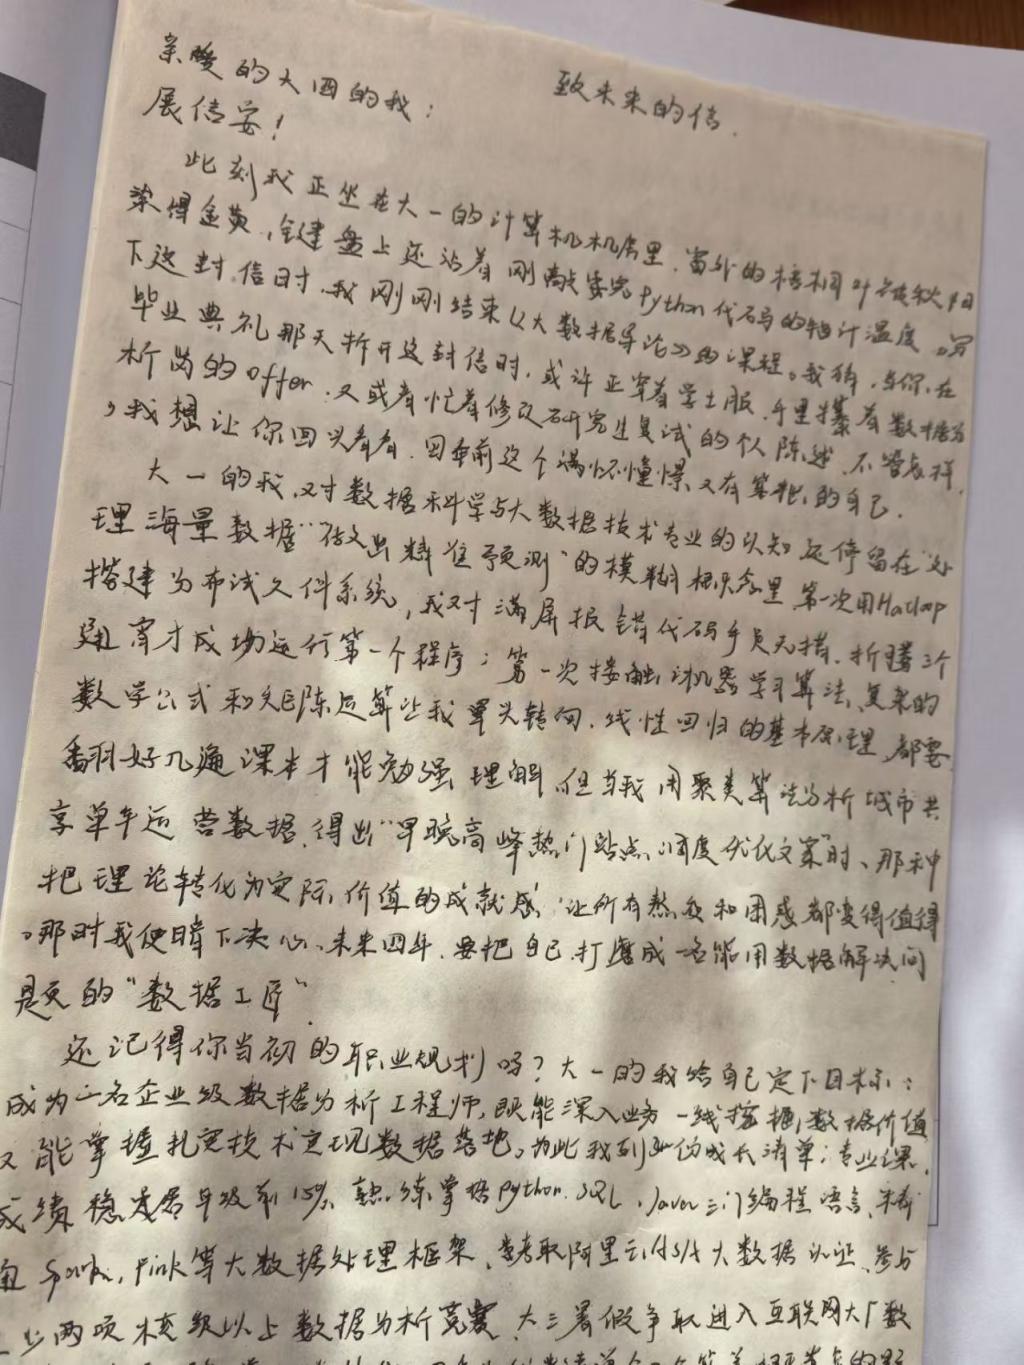 致未来的信.
亲爱的大四的我:
展信安!
此刻我正坐在大一的计算机机房里,窗外的梧桐叶被秋阳
染得金黄,键盘上还沾着刚敲完Python代码的指计温度。写
下这封信时,我刚刚结束《大数据导论》的课程。我猜,当你在
毕业典礼那天拆开这封信时,或许正穿着学士服,手里攥着数据分
析岗的offer.又或者忙着修改研究生复试的个人陈述,不管怎样,
,我想让你回头看看,四年前这个满怀憧憬又有笨拙的自己.
大一的我,对数据科学与大数据技术专业的认知还停留在"处
理海量数据""做出精准预测"的模糊概念里 第一次用Hadoop
搭建分布式文件系统,我对满屏报错代码手足无措,折腾三个
通宵才成功运行第一个程序;第一次接触机器学习算法,复杂的
数学公式和矩阵运算让我晕头转向,线性回归的基本原理,都要
翻好几遍课本才能勉强理解,但当我用聚类算法分析城市共
享单车运营数据,得出"早晚高峰热门站点调度优化文案"时、那种
把理论转化为实际价值的成就感,让所有熬夜和困惑都变得值得
,那时我便暗下决心、未来四年,要把自己打磨成一名能用数据解决问
题的"数据工匠"
还记得你当初的职业规划吗?大一的我给自己定下目标:
成为一名企业级数据分析工程师,既能深入业务一线挖掘数据价值
又能掌握扎实技术实现数据落地。为此我列了份成长清单:专业课
成绩稳定居年级前15%,熟练掌握python.SQL,Java三门编程语言,精
通Spark,Flink等大数据处理框架、考取阿里云大数据认证、参与
至少两项校级以上数据分析竞赛,大三暑假争取进入互联网大厂数